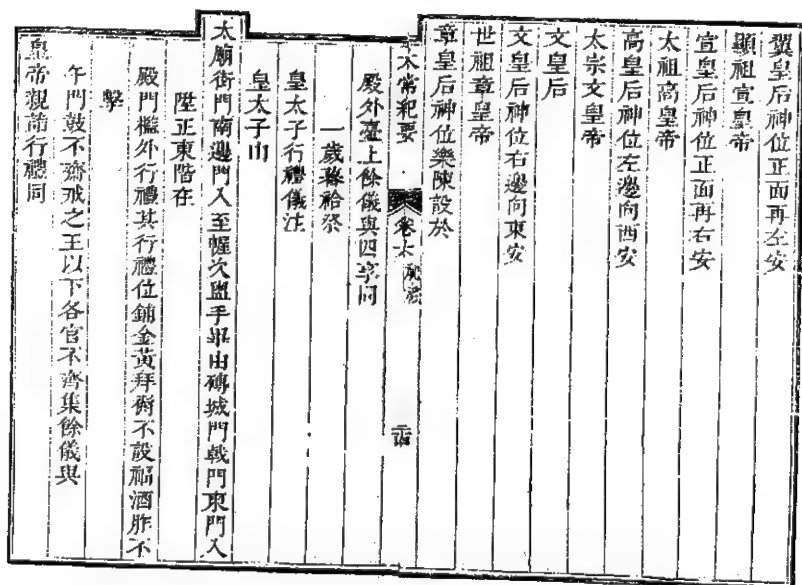 翼皇后神位正面再左安
顯祖宣皇帝
宣皇后神位正面再右安
太祖高皇帝
高皇后神位左邊向西安
太宗文皇帝
文皇后
文皇后神位右邊向東安
世祖章皇帝
章皇后神位樂陳設於
太常紀要 卷六
殿外臺上餘儀與四孟同
一歲暮祫祭
皇太子行禮儀注
皇太子由
太廟街門南邊門入至幄次盥手畢由磚城門戟門東門入
陞正東階在
殿門檻外行禮其行禮位鋪金黃拜褥不設福酒胙不
擊
午門鼓不齋戒之王以下各官不齊集餘儀與
皇帝親詣行禮同